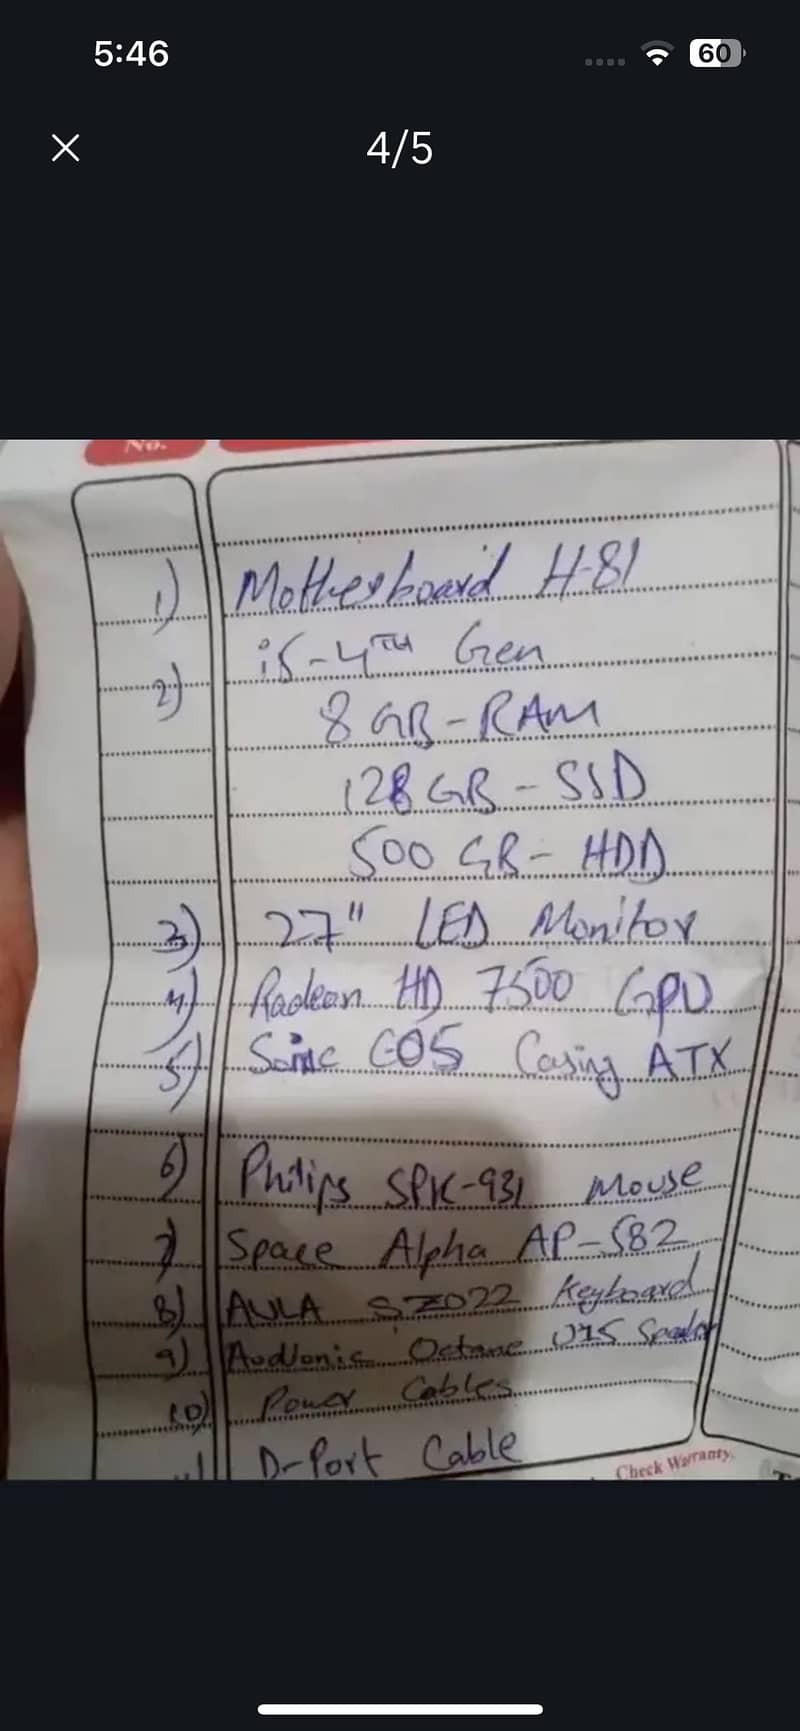 5:46
60
4/5
No.
1) Motherboard H-81
2) i5-4TH Gen
8 GB-RAM
128 GB - SSD
500 GB - HDD
3) 27" LED Monitor
4) Radean HD 7500 GPU
5) Sonic G05 Casing ATX
6) Philips SPK-931 Mouse
7) Space Alpha AP-582
8) AULA SZ022 Keyboard
9) Audionic Octane U35 Speaker
10) Power Cables
D-Port Cable
Check Warranty.